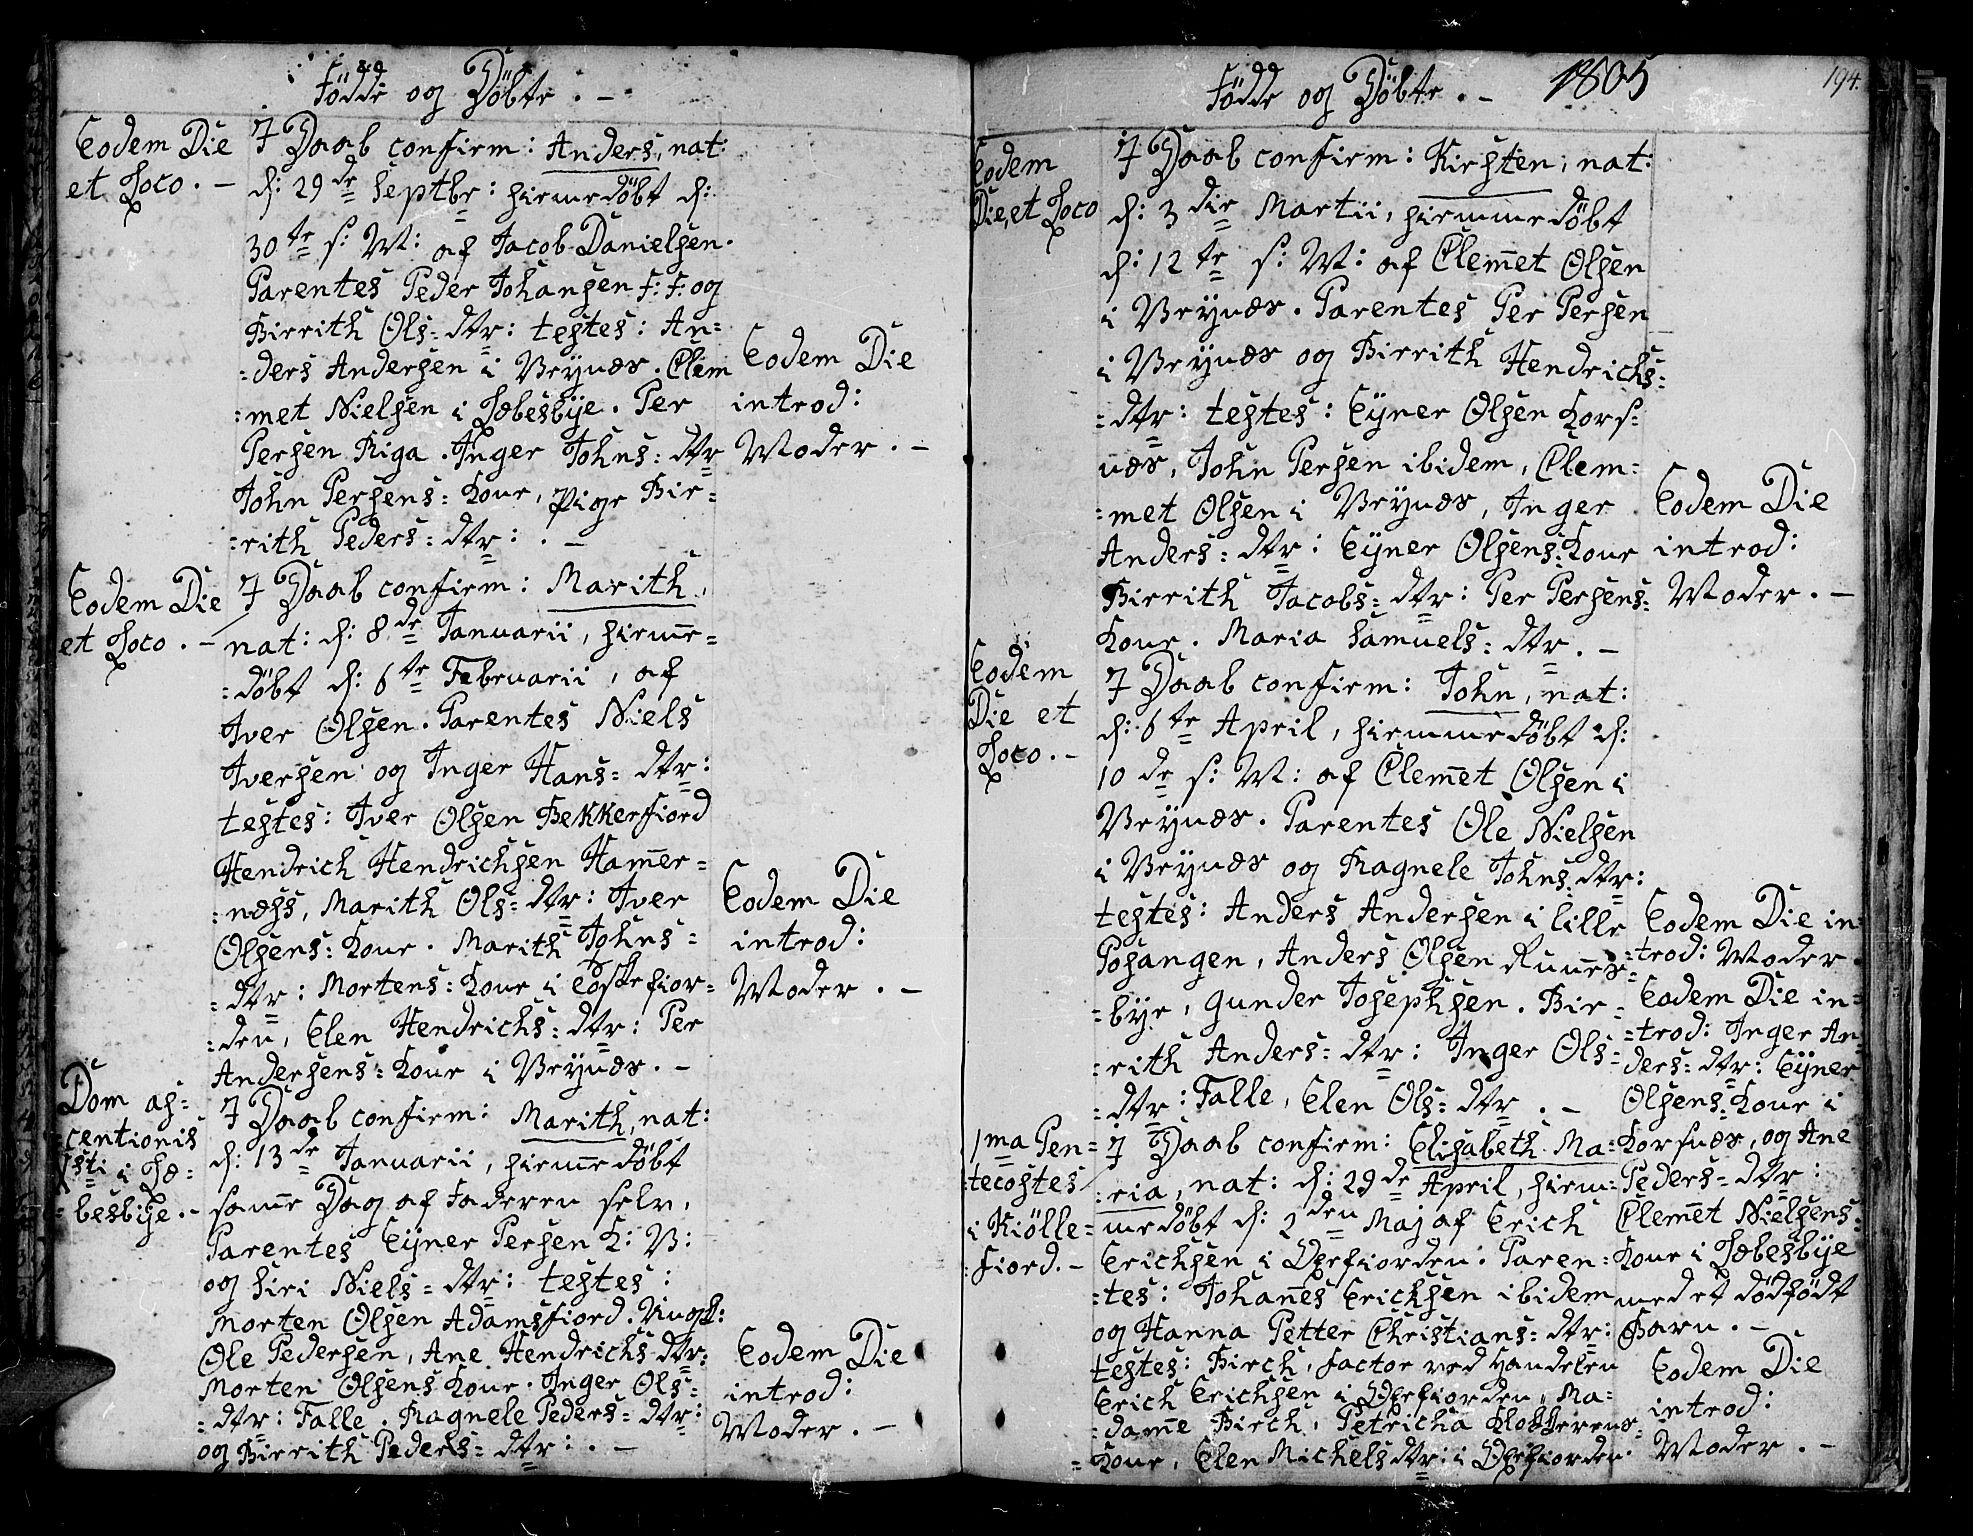 Fødde og Døbte. -
Eodem Die
et Loco. -
I Daab confirm: Anders, nat:
d: 29de Septbr: hiemedøbt d:
30te s: M: af Jacob Danielsen.
Parentes Peder Johansen F: F: og
Birrith Ols=dtr: testes: An=
=ders Andersen i Veynæs. Clem
=met Nielsen i Læbesbye. Per
Persen Riga. Inger Johns=dtr
John Persens=Kone, Pige Bir=
=rith Peders=dtr: . -
Eodem Die
introd:
Moder. -
Eodem Die
et Loco. -
I Daab confirm: Marith,
nat: d: 8de Januarii, hieme=
=døbt d: 6te Februarii, af
Iver Olsen. Parentes Niels
Iversen og Inger Hans=dtr:
testes: Iver Olsen Bekkerfiord
Hendrich Hendrichsen Hamer=
=næss, Marith Ols=dtr: Iver
Olsens=Kone. Marith Johns=
=dtr: Mortens=Kone i Eoskefior=
=den, Elen Hendrichs=dtr: Per
Andersens=Kone i Veynæs. -
Eodem Die
introd:
Moder. -
Dom as=
=centionis
Xsti i Læ=
=besbye. -
I Daab confirm: Marith, nat:
d: 13de Januarii, hiemedøbt
samme Dag af Faderen selv.
Parentes Eyner Persen K: B:
og Siri Niels=dtr: testes:
Morten Olsen Adamsfiord. Ungk:
Ole Pedersen, Ane Hendrichs dtr:
Morten Olsens Kone. Inger Ols=
=dtr: Falle. Ragnele Peders=dtr:
og Birrith Peders=dtr: . -
Eodem Die
introd:
Moder. -
Fødde og Døbte. - 1805
194.
Eodem
Die, et Loco
I Daab confirm: Kirsten, nat:
d: 3die Martii, hiemmedøbt
d: 12te s: M: af Clemet Olsen
i Veynæs. Parentes Per Persen
i Veynæs og Birrith Hendrichs=
=dtr: testes: Eyner Olsen Kors=
næs, John Persen ibidem, Clem=
=met Olsen i Veynæs, Inger
Anders=dtr: Eyner Olsens=Kone
Birrith Jacobs=dtr: Per Persens=
Kone. Maria Samuels=dtr. -
Eodem Die
introd:
Moder. -
Eodem
Die et
Loco. -
I Daab confirm: John, nat:
d: 6te April, hiemmedøbt d:
10de s: M: af Clemet Olsen i
Veynæs. Parentes Ole Nielsen
i Veynæs og Ragnele Johns dtr:
testes: Anders Andersen i lille
Posangen, Anders Olsen Runes=
=bye, Gunder Josephsen. Bir=
=rith Anders=dtr: Inger Ols=
=dtr: Falle, Elen Ols=dtr. -
Eodem Die in=
=trod: Moder.
Eodem Die in=
=trod: Inger An=
ders=dtr: Eyner
Olsens Kone i
Korsnæs, og Ane
Peders=dtr:
Clemet Nielsens=
Kone i Læbesbye
med et dødfødt
Barn. -
1ma Pen=
=tecostes
i Kiölle=
=fiord. -
I Daab confirm: Elisabeth Ma=
=ria, nat: d: 29de April, hiem=
medøbt d: 2den Maj af Erich
Erichsen i Oxefiorden: Paren=
=tes: Johannes Erichsen ibidem
og Hanna Petter Christians=dtr:
testes: Birch, factor ved Handelen
Erich Erichsen i Oxefiorden, Ma=
=dame Birch, Petricha Klokkerens
=Kone, Elen Michels dtr: i Oxefiorden.
Eodem Die
introd:
Moder. -